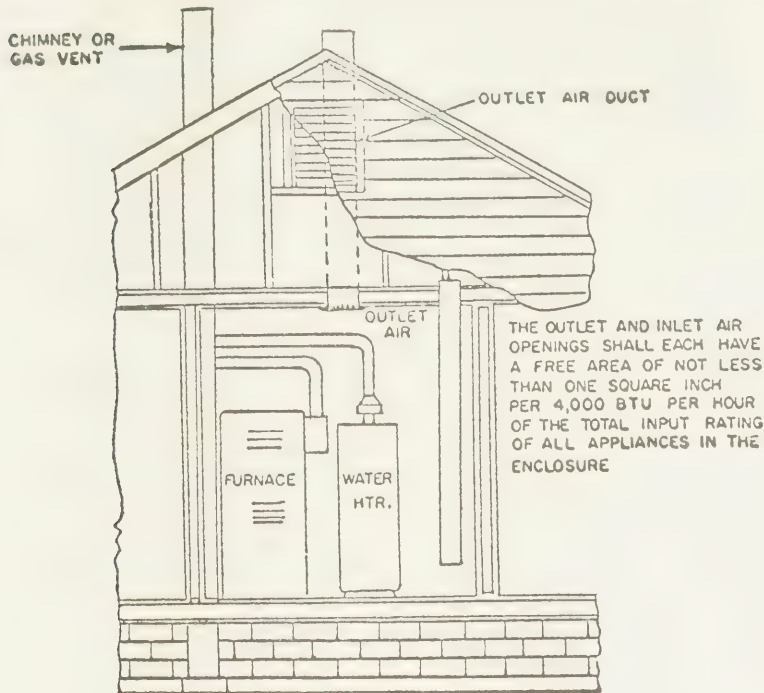 CHIMNEY OR
GAS VENT
OUTLET AIR DUCT
OUTLET
AIR
THE OUTLET AND INLET AIR
OPENINGS SHALL EACH HAVE
A FREE AREA OF NOT LESS
THAN ONE SQUARE INCH
PER 4,000 BTU PER HOUR
OF THE TOTAL INPUT RATING
OF ALL APPLIANCES IN THE
ENCLOSURE
FURNACE
WATER
HTR.